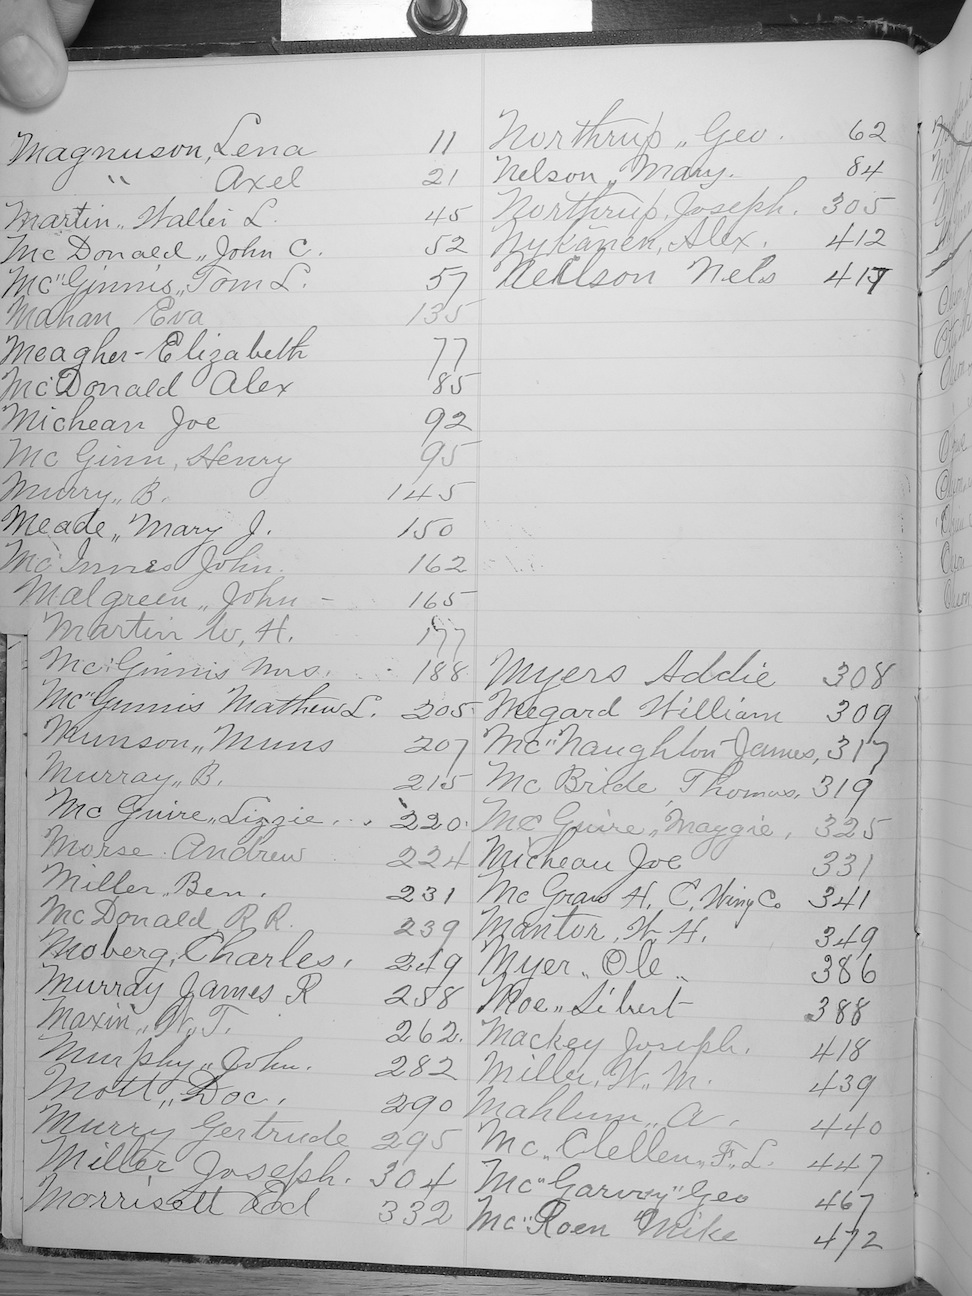 Magnuson, Lena 11
" Axel 21
Martin,, Walter L. 45
Mc Donald,, John C. 52
Mc"Ginnis,, Tom L. 57
Mahan Eva 135
Meagher-Elizabeth 77
Mc Donald Alex 85
Micheau Joe 92
Mc Ginn, Henry 95
Murry,, B. 145
Meade,, Mary J. 150
Mc Innes John. 162
Malgreen,, John - 165
Martin W, H. 177
Mc Ginnis Mrs. 188
Mc"Ginnis Mathew L. 205
Munson,, Muns 207
Murray,, B. 215
Mc Guire,, Lizzie . . . 220.
Morse Andrew 224
Miller,, Ben. 231
Mc Donald R R. 239
Moberg, Charles. 249
Murray James R 258
Maxin,, W,, T. 262.
Murphy,, John. 282
Mott,, Doc. 290
Murry Gertrude 295
Miller Joseph. 304
Morrisett Ed 332
Northrup,, Geo. 62
Nelson,, Mary. 84
Northrup, Joseph. 305
Nykänen, Alex. 412
Neilson Nels 417
Myers Addie 308
Megard William 309
Mc"Naughton James, 317
Mc Bride Thomas, 319
Mc Guire,, Maggie, 325
Micheau Joe 331
Mc Graw H. C. Wing Co 341
Mantor, W H. 349
Myer,, Ole,, 386
Moe,, Sibert 388
Mackey Joseph. 418
Miller, W,, M. 439
Mahlum,, A. 440
Mc,, Clellen,, F,, L. 447
Mc"Garvey" Geo 467
Mc"Roen "Mike 472